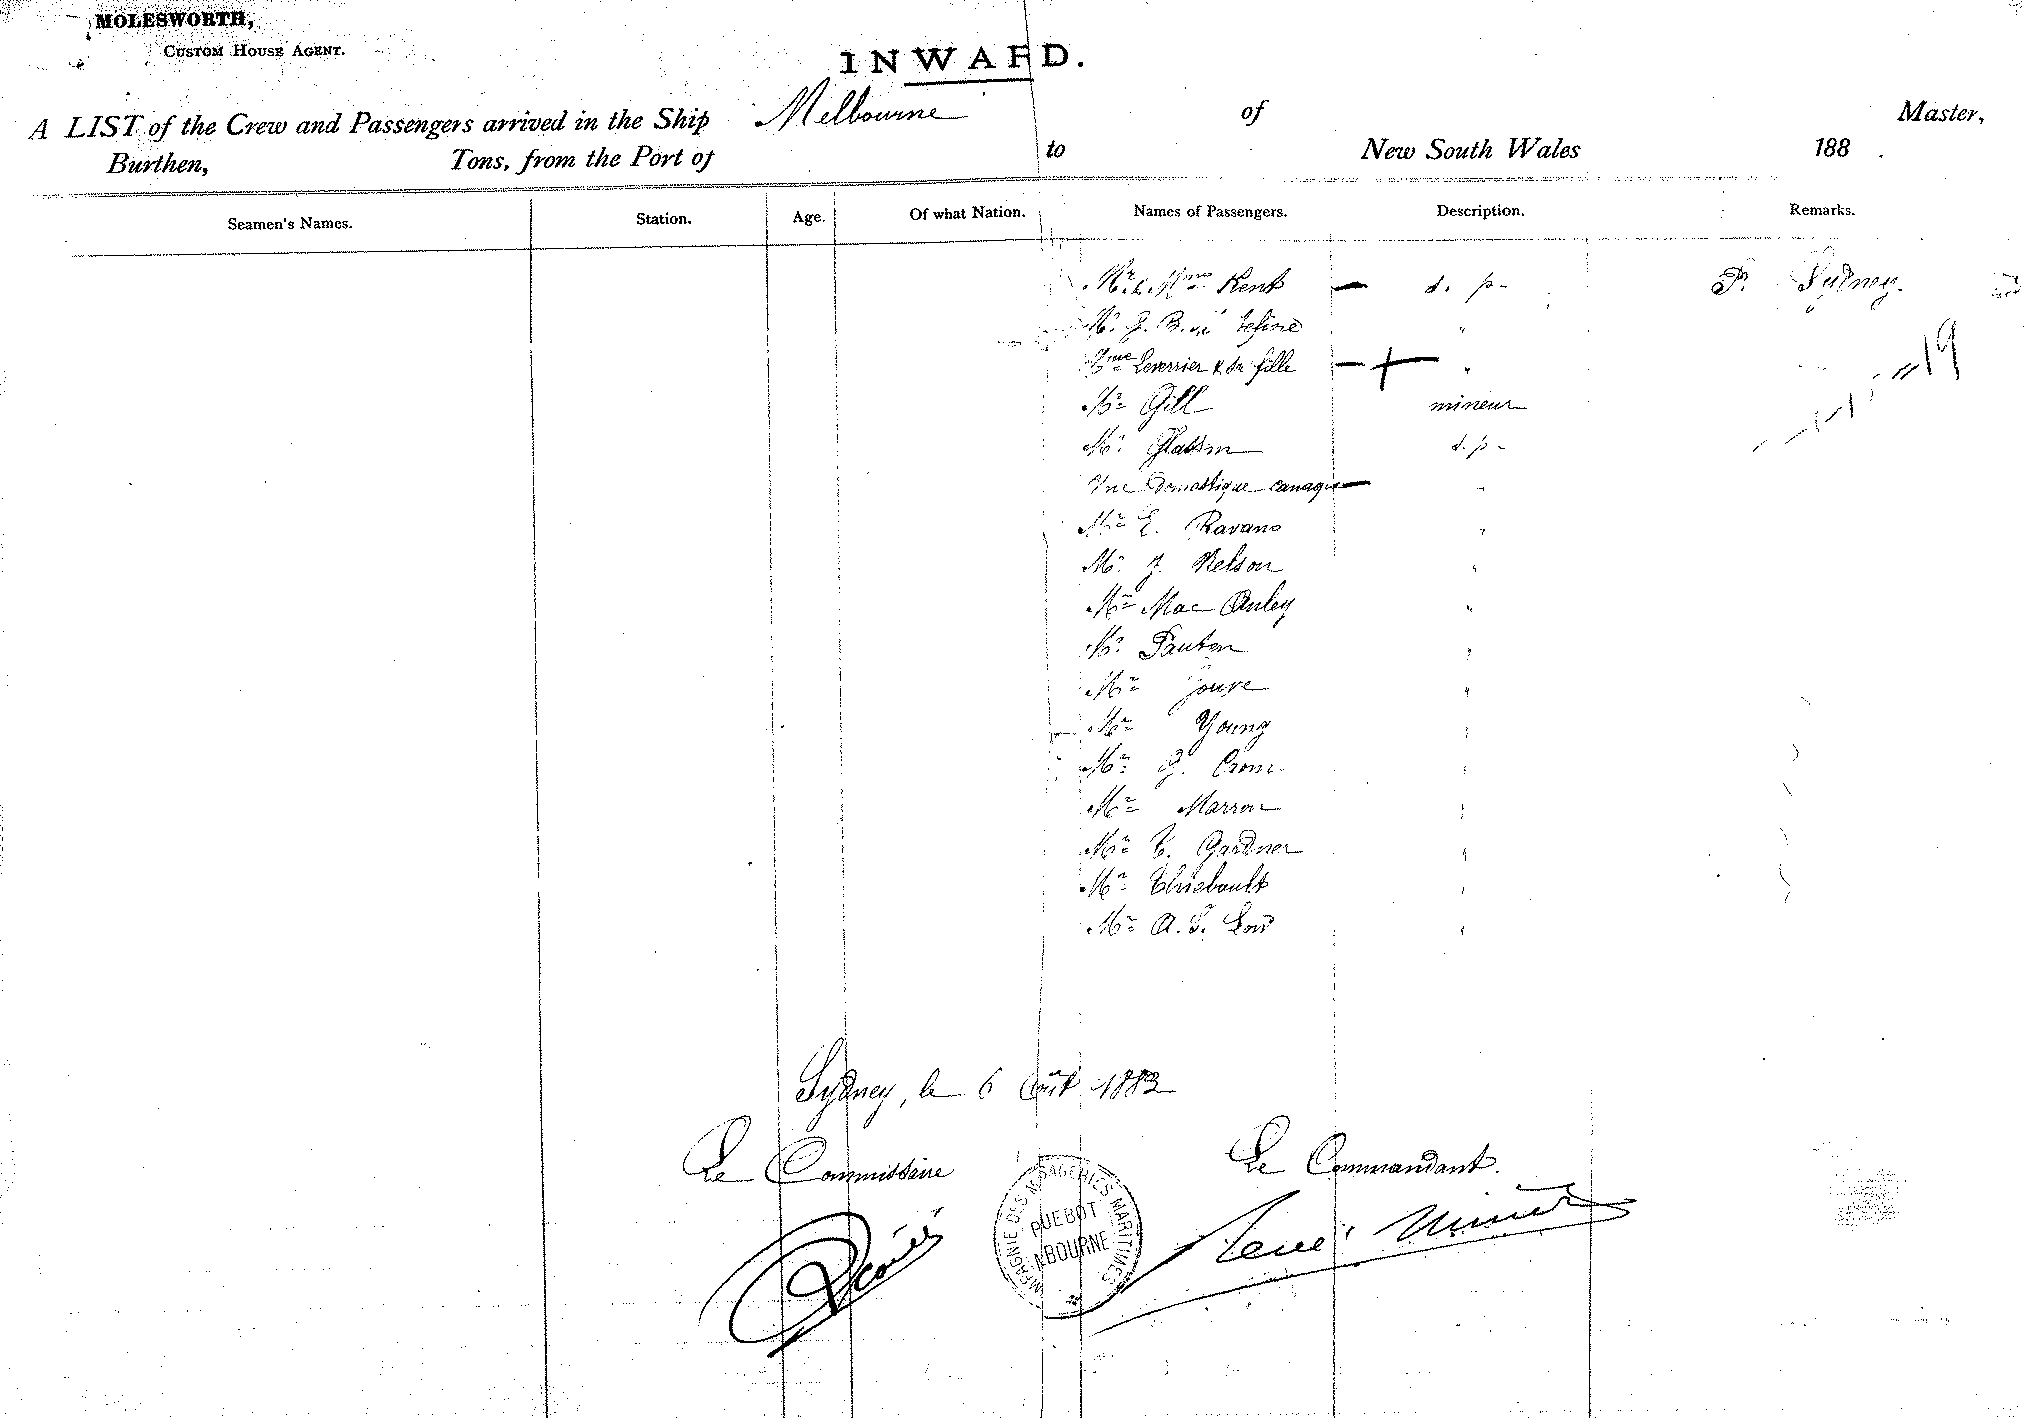 MOLESWORTH,
CUSTOM HOUSE AGENT.
INWARD.
A LIST of the Crew and Passengers arrived in the Ship Melbourne of Master,
Burthen, Tons, from the Port of to New South Wales 188 .
Seamen's Names. Station. Age. Of what Nation. Names of Passengers. Description. Remarks.
Mr & Mme Kent — d. p. P. Sydney.
Mr J. B. "
Mme Leverrier & sa fille — + "
Mr Gill mineur
Mr d. p.
Une domestique canaque — "
Mr E. Ravano "
Mr J. Nelson "
Mr Mac Auley "
Mr "
Mr Jouve "
Mr Young "
Mr G. "
Mr Marron "
Mr Gardner "
Mr Thiebault "
Mr A. "
19
Sydney, le 6 Août 1883
Le Commissaire Le Commandant.
COMPAGNIE DES MESSAGERIES MARITIMES
PAQUEBOT
MELBOURNE